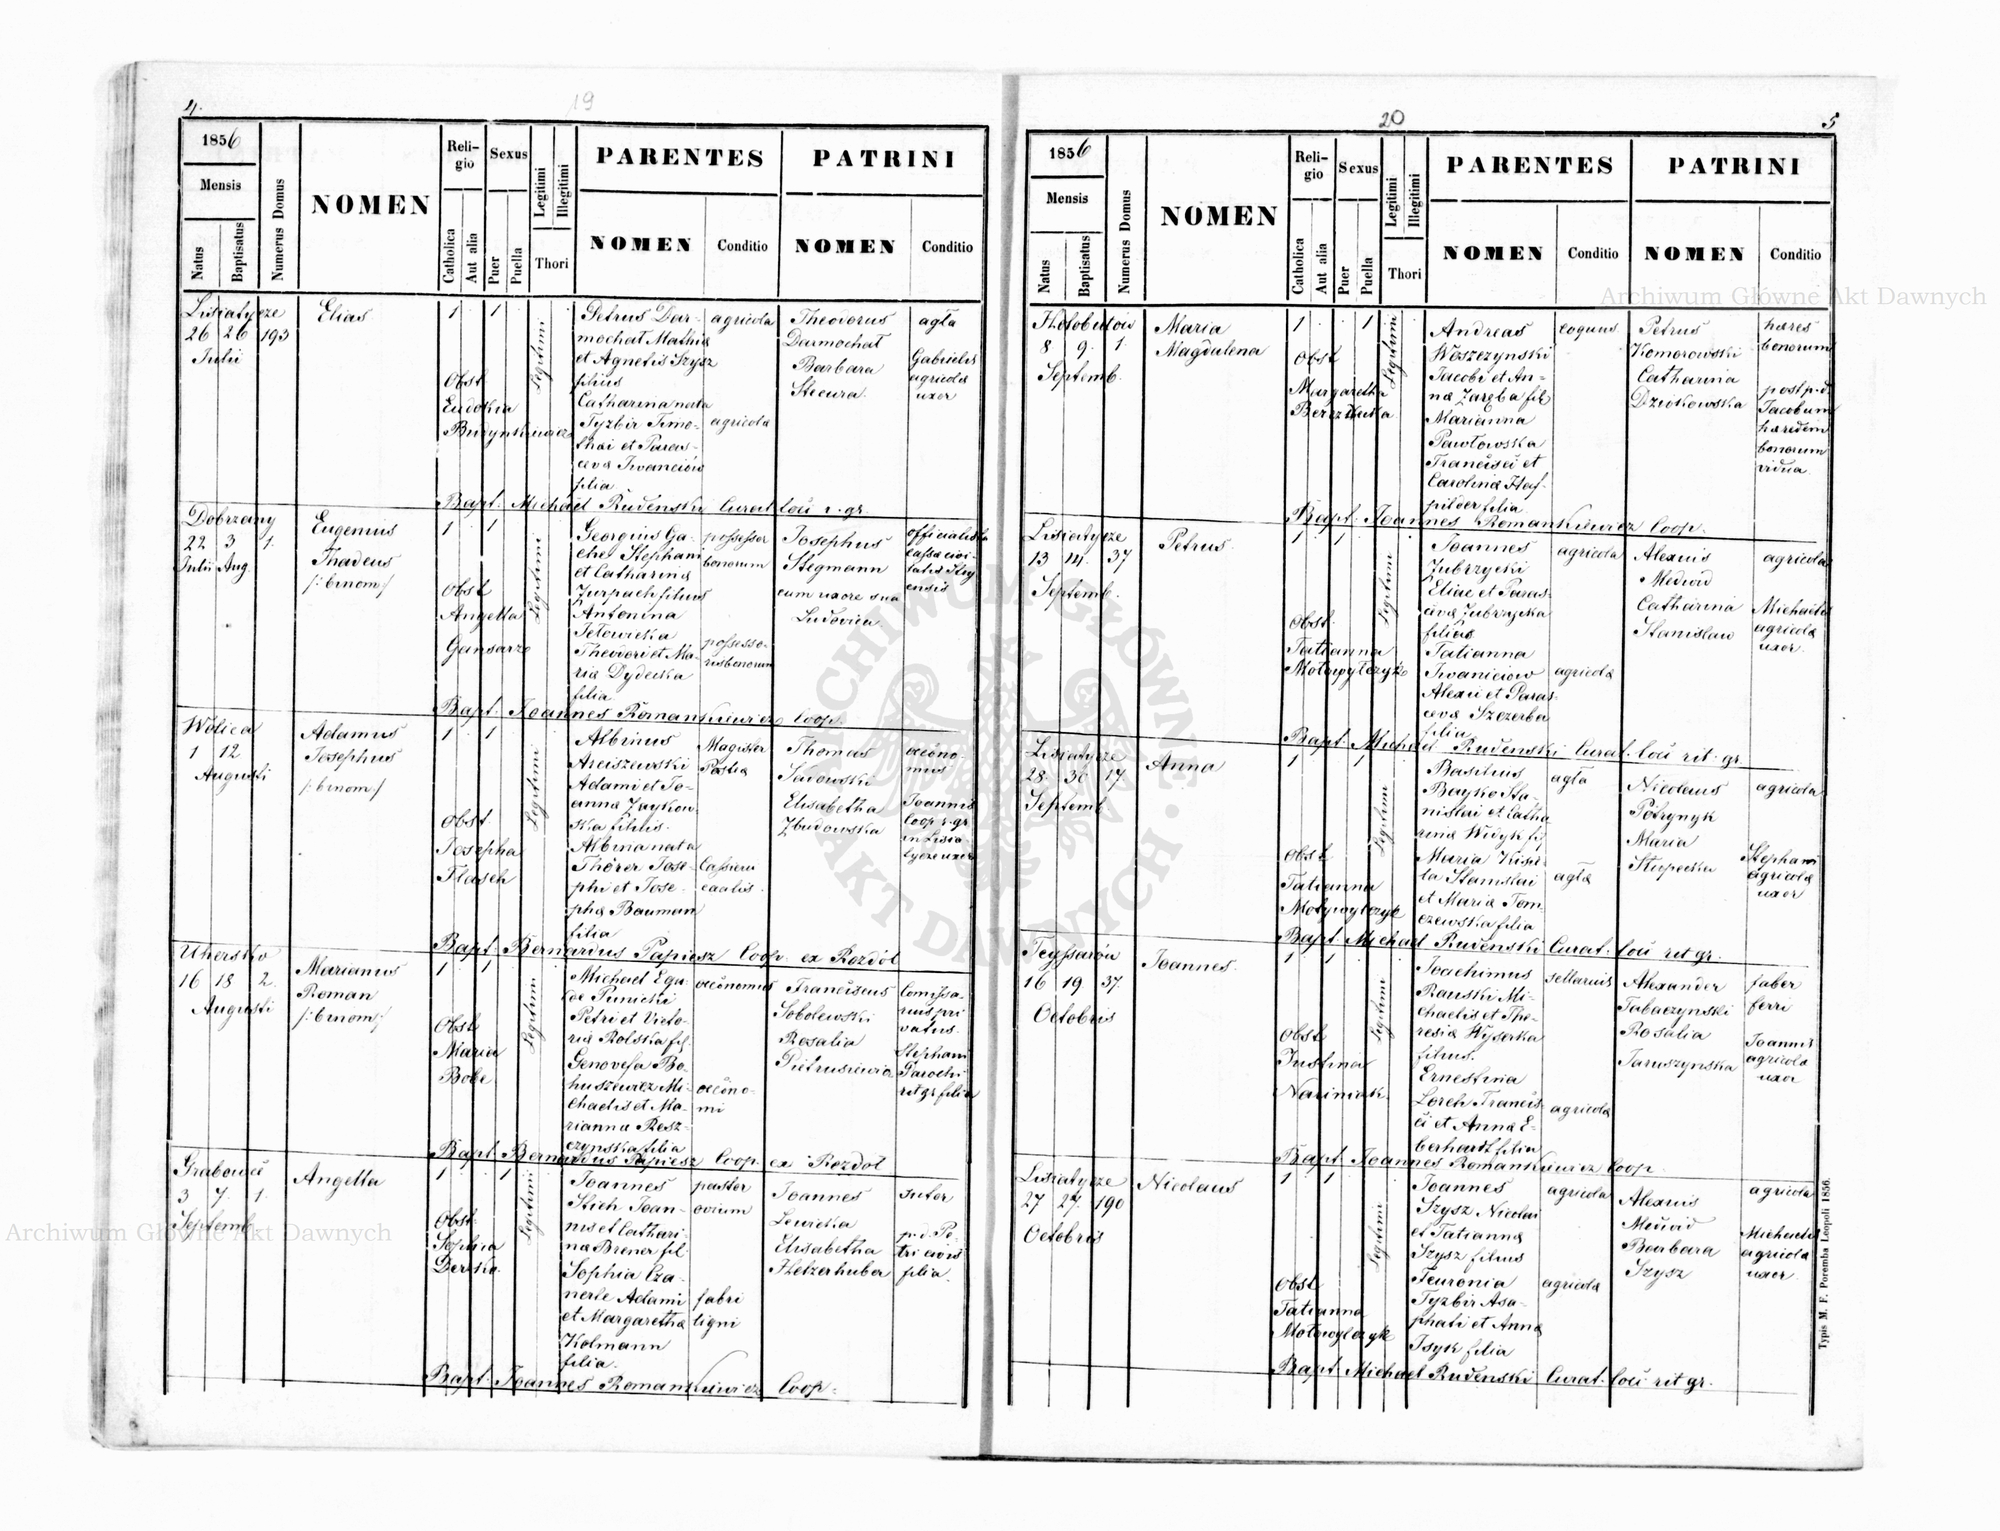 4.
19
1856
Mensis
Natus
Baptisatus
Numerus Domus
NOMEN
Religio
Catholica
Aut alia
Sexus
Puer
Puella
Legitimi
Illegitimi
Thori
PARENTES
NOMEN
Conditio
PATRINI
NOMEN
Conditio
Lisiatycze
26 26 193
Julii
Elias
1 1
Obst
Eudokia
Budynkiewicz
Legitimi
Petrus Dar-
mochat Mathiæ
et Agnetis Szysz
filius
Catharina nata
Tyzbir Timo-
thæi et Paras-
cevæ Iwanciów
filia
agricola
agricolæ
Theodorus
Darmochat
Barbara
Stecura
agla
Gabrielis
agricolæ
uxor
Bapt. Michael Rudenski Curat. loci r. gr.
Dobrzany
22 3 1.
Julii Aug.
Eugenius
Thadeus
/: binom :/
1 1
Obst
Angella
Gansarz
Legitimi
Georgius Ga-
Stephani
et Catharinæ
Zurpach filius
Antonina
Tetowicka
Theodori et Ma-
riæ Dydecka
filia
possessor
bonorum
possesso-
ris bonorum
Josephus
Stegmann
cum uxore sua
Ludovica
officialista
cassæ civi-
tatis Stry-
ensis
Bapt. Joannes Romankiewicz Coop.
Wolica
1 12
Augusti
Adamus
Josephus
/: binom :/
1 1
Obst
Josepha
Flasch
Legitimi
Albinus
Arciszewski
Adami et Jo-
annæ Zaykow-
ska filius.
Albina nata
Thörer Jose-
phi et Jose-
phæ Bauman
filia
Magister
Postæ
Cassieri
caalis.
Thomas
Sadowski
Elisabetha
Zbudowska
œcono-
mus
Joannis
Coop r. gr.
in Lisia-
tycze uxor
Bapt. Bernardus Papiesz Coop. ex Rozdół
Uhersko
16 18 2.
Augusti
Marianus
Roman
/: binom :/
1 1
Obst
Maria
Bobe
Legitimi
Michael
Punicki
Petri et Victo-
riæ Rolska fil.
Genovefa Bo-
huszewicz Mi-
chaelis et Ma-
riannæ Resz-
czynska filia
œconomus
œcono-
mi
Franciscus
Sobolewski
Rosalia
Pietrusiewicz
Comissa-
rius pri-
vatus.
Stephani
Parochi
rit gr filia
Bapt. Bernardus Papiesz Coop. ex Rozdół
Grabowce
3 7. 1.
Septemb.
Angella
1 1
Obst.
Sophia
Derska
Legitimi
Joannes
Stich Joan-
nis et Cathari-
næ Brener fil.
Sophia Cza-
nerle Adami
et Margarethæ
Kolmann
filia.
pastor
ovium
fabri
ligni
Joannes
Lewicka
Elisabetha
Hetzerhuber
sutor
p. d. Pe-
tri civis
filia.
Bapt. Joannes Romankiewicz Coop.
20
5
1856
Mensis
Natus
Baptisatus
Numerus Domus
NOMEN
Religio
Catholica
Aut alia
Sexus
Puer
Puella
Legitimi
Illegitimi
Thori
PARENTES
NOMEN
Conditio
PATRINI
NOMEN
Conditio
Hołobutów
8 9. 1.
Septemb.
Maria
Magdalena
1 1
Obst
Margaretha
Berezhuka
Legitimi
Andreas
Woszczynski
Jacobi et An-
næ Zaręba fil
Marianna
Pawłowska
Francisci et
Carolinæ Haf-
pilder filia.
coquus
Petrus
Komorowski
Catharina
Dzikowska
hæres
bonorum
post p. d.
Jacobum
hæredem
bonorum
vidua.
Bapt. Joannes Romankiewicz Coop.
Lisiatycze
13 14. 37
Septemb.
Petrus.
1 1
Obst.
Tatianna
Motowylczyk
Legitimi
Joannes
Zubrzycki
Eliae et Paras-
cevæ Zubrzycka
filius
Tatianna
Iwaniciow
Alexii et Paras-
cevæ Szczerba
filia
agricola
agricolæ
Alexius
Medwid
Catharina
Stanislaw
agricola
Michaelis
agricolæ
uxor.
Bapt. Michael Rudenski Curat. loci rit. gr.
Lisiatycze
28. 30 17.
Septemb
Anna
1 1
Obst
Tatianna
Motywylczyk
Legitimi
Basilius
Bayko Sta-
nislai et Catha-
rinæ Widyk fil
Maria Kisi-
la Stanislai
et Mariæ Tom-
czewska filia
agla
aglæ
Nicolaus
Potrynyk
Maria
Stupecka
agricola
Stephani
agricolæ
uxor
Bapt. Michael Rudenski Curat. loci rit gr.
Teyssarów
16 19 37.
Octobris
Joannes.
1 1
Obst
Justina
Nasimiak.
Legitimi
Joachimus
Rauski Mi-
chaelis et The-
resiæ Wyserka
filius.
Ernestina
Lorch Francis-
ci et Annæ E-
berhardt filia
sellarius
agricolæ
Alexander
Tabaczynski
Rosalia
Jaruszynska
faber
ferri
Joannis
agricolæ
uxor
Bapt. Joannes Romankiewicz Coop.
Lisiatycze
27 27. 190
Octobris
Nicolaus
1 1
Obst
Tatianna
Motowylczyk
Legitimi
Joannes
Szysz Nicolai
et Tatiannæ
Szysz filius
Feuronia
Tyzbir Asa-
phati et Annæ
Isyk filia
agricola
agricolæ
Alexius
Medwid
Barbara
Szysz
agricola
Michaelis
agricolæ
uxor.
Bapt. Michael Rudenski Curat. loci rit gr.
Typis M. F. Poremba Leopoli 1856.
Archiwum Główne Akt Dawnych
Archiwum Główne Akt Dawnych
ARCHIWUM GŁÓWNE AKT DAWNYCH